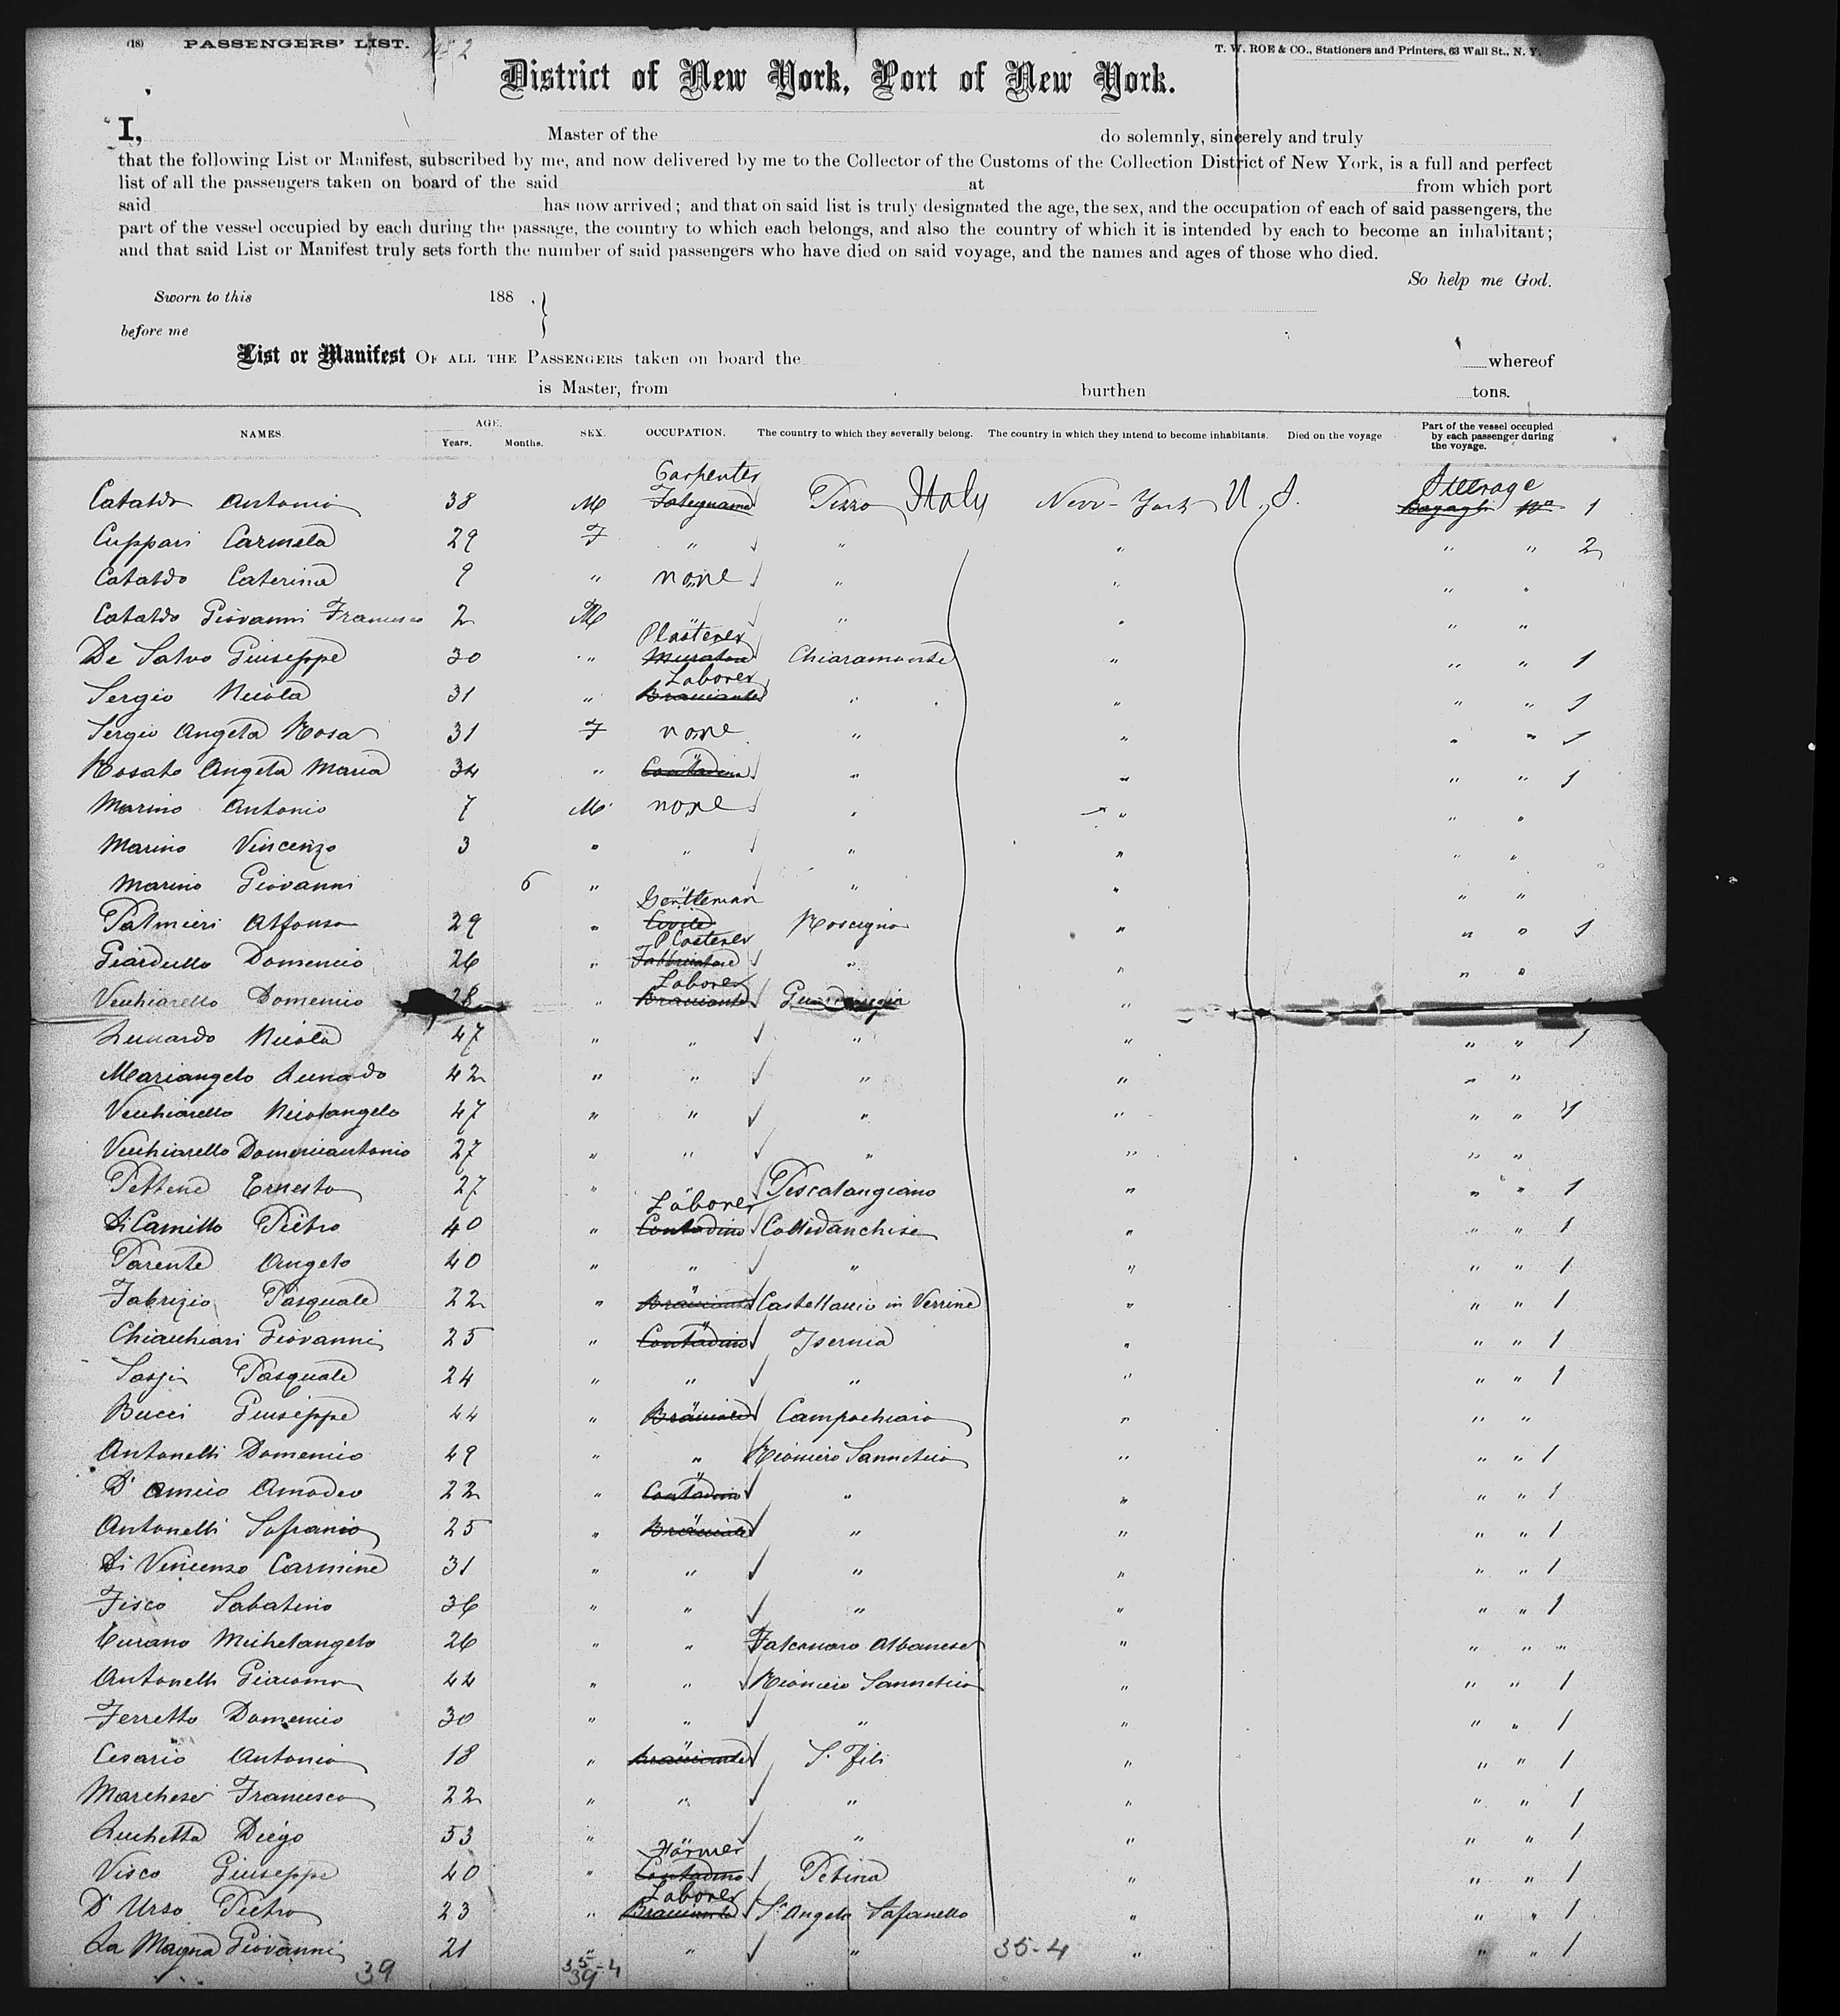 (18) PASSENGERS' LIST. No 2 T. W. ROE & CO., Stationers and Printers, 63 Wall St., N. Y.
District of New York, Port of New York.
I, Master of the do solemnly, sincerely and truly
that the following List or Manifest, subscribed by me, and now delivered by me to the Collector of the Customs of the Collection District of New York, is a full and perfect
list of all the passengers taken on board of the said at from which port
said has now arrived; and that on said list is truly designated the age, the sex, and the occupation of each of said passengers, the
part of the vessel occupied by each during the passage, the country to which each belongs, and also the country of which it is intended by each to become an inhabitant;
and that said List or Manifest truly sets forth the number of said passengers who have died on said voyage, and the names and ages of those who died.
So help me God.
Sworn to this 188 .
before me
List or Manifest OF ALL THE PASSENGERS taken on board the whereof
is Master, from burthen tons.
NAMES AGE. Years. Months. SEX. OCCUPATION. The country to which they severally belong. The country in which they intend to become inhabitants. Died on the voyage Part of the vessel occupied by each passenger during the voyage.
Carpenter Steerage
Cataldo Antonio 38 M Falegname Pizzo Italy New-York U. S. 1
Cuppari Carmela 29 F " " " " " 2
Cataldo Caterina 9 " none " " " "
Cataldo Giovanni Francesco 2 M " " " " "
Plasterer
De Salvo Giuseppe 30 " Muratore Chiaramonte " " " 1
Laborer
Sergio Nicola 31 " Bracciante " " " " 1
Sergio Angela Rosa 31 F none " " " " 1
Rosato Angela Maria 34 " Contadina " " " " 1
Marino Antonio 7 M none " " " "
Marino Vincenzo 3 " " " " " "
Marino Giovanni 6 " " " " " "
Gentleman
Palmieri Alfonso 29 " Civile Roscigno " " " 1
Plasterer
Giardullo Domenico 26 " Fabbricatore " " " "
Laborer
Vecchiarello Domenico 28 " Bracciante "
Lunardo Nicola 47 " " " " " " 1
Mariangelo Lunardo 42 " " " " " "
Vecchiarello Nicolangelo 47 " " " " " " 1
Vecchiarello Domenicantonio 27 " " " " " "
Pettene Ernesto 27 " " Pescolangiano " " " 1
Laborer
Di Camillo Pietro 40 " Contadino Colledanchise " " " 1
Parente Angelo 40 " " " " " " 1
Fabrizio Pasquale 22 " Bracciante Castelluccio in Verrine " " " 1
Chiacchiari Giovanni 25 " Contadino Isernia " " " 1
Pasquale 24 " " " " " " 1
Bucci Giuseppe 44 " Bracciale Campochiaro " " "
Antonelli Domenico 49 " " Rionero Sannitico " " " 1
D'Amico Amodeo 22 " Contadino " " " " 1
Antonelli Sofranio 25 " Bracciale " " " " 1
Di Vincenzo Carmine 31 " " " " " " 1
Fisco Sabatino 36 " " " " " " 1
Curano Michelangelo 26 " " Falconara Albanese " " " "
Antonelli Giacomo 44 " " Rionero Sannitico " " " 1
Ferretto Domenico 30 " " " " " " 1
Cesario Antonio 18 " Bracciante S. Fili " " " 1
Marchese Francesco 22 " " " " " " 1
Luchetta Diego 53 " " " " " " 1
Farmer
Visco Giuseppe 40 " Contadino Petina " " " 1
Laborer
D'Urso Pietro 23 " Bracciante St Angelo Fasanello " " " 1
La Magna Giovanni 21 " " " 35-4 " " " 1
39 35-4
39